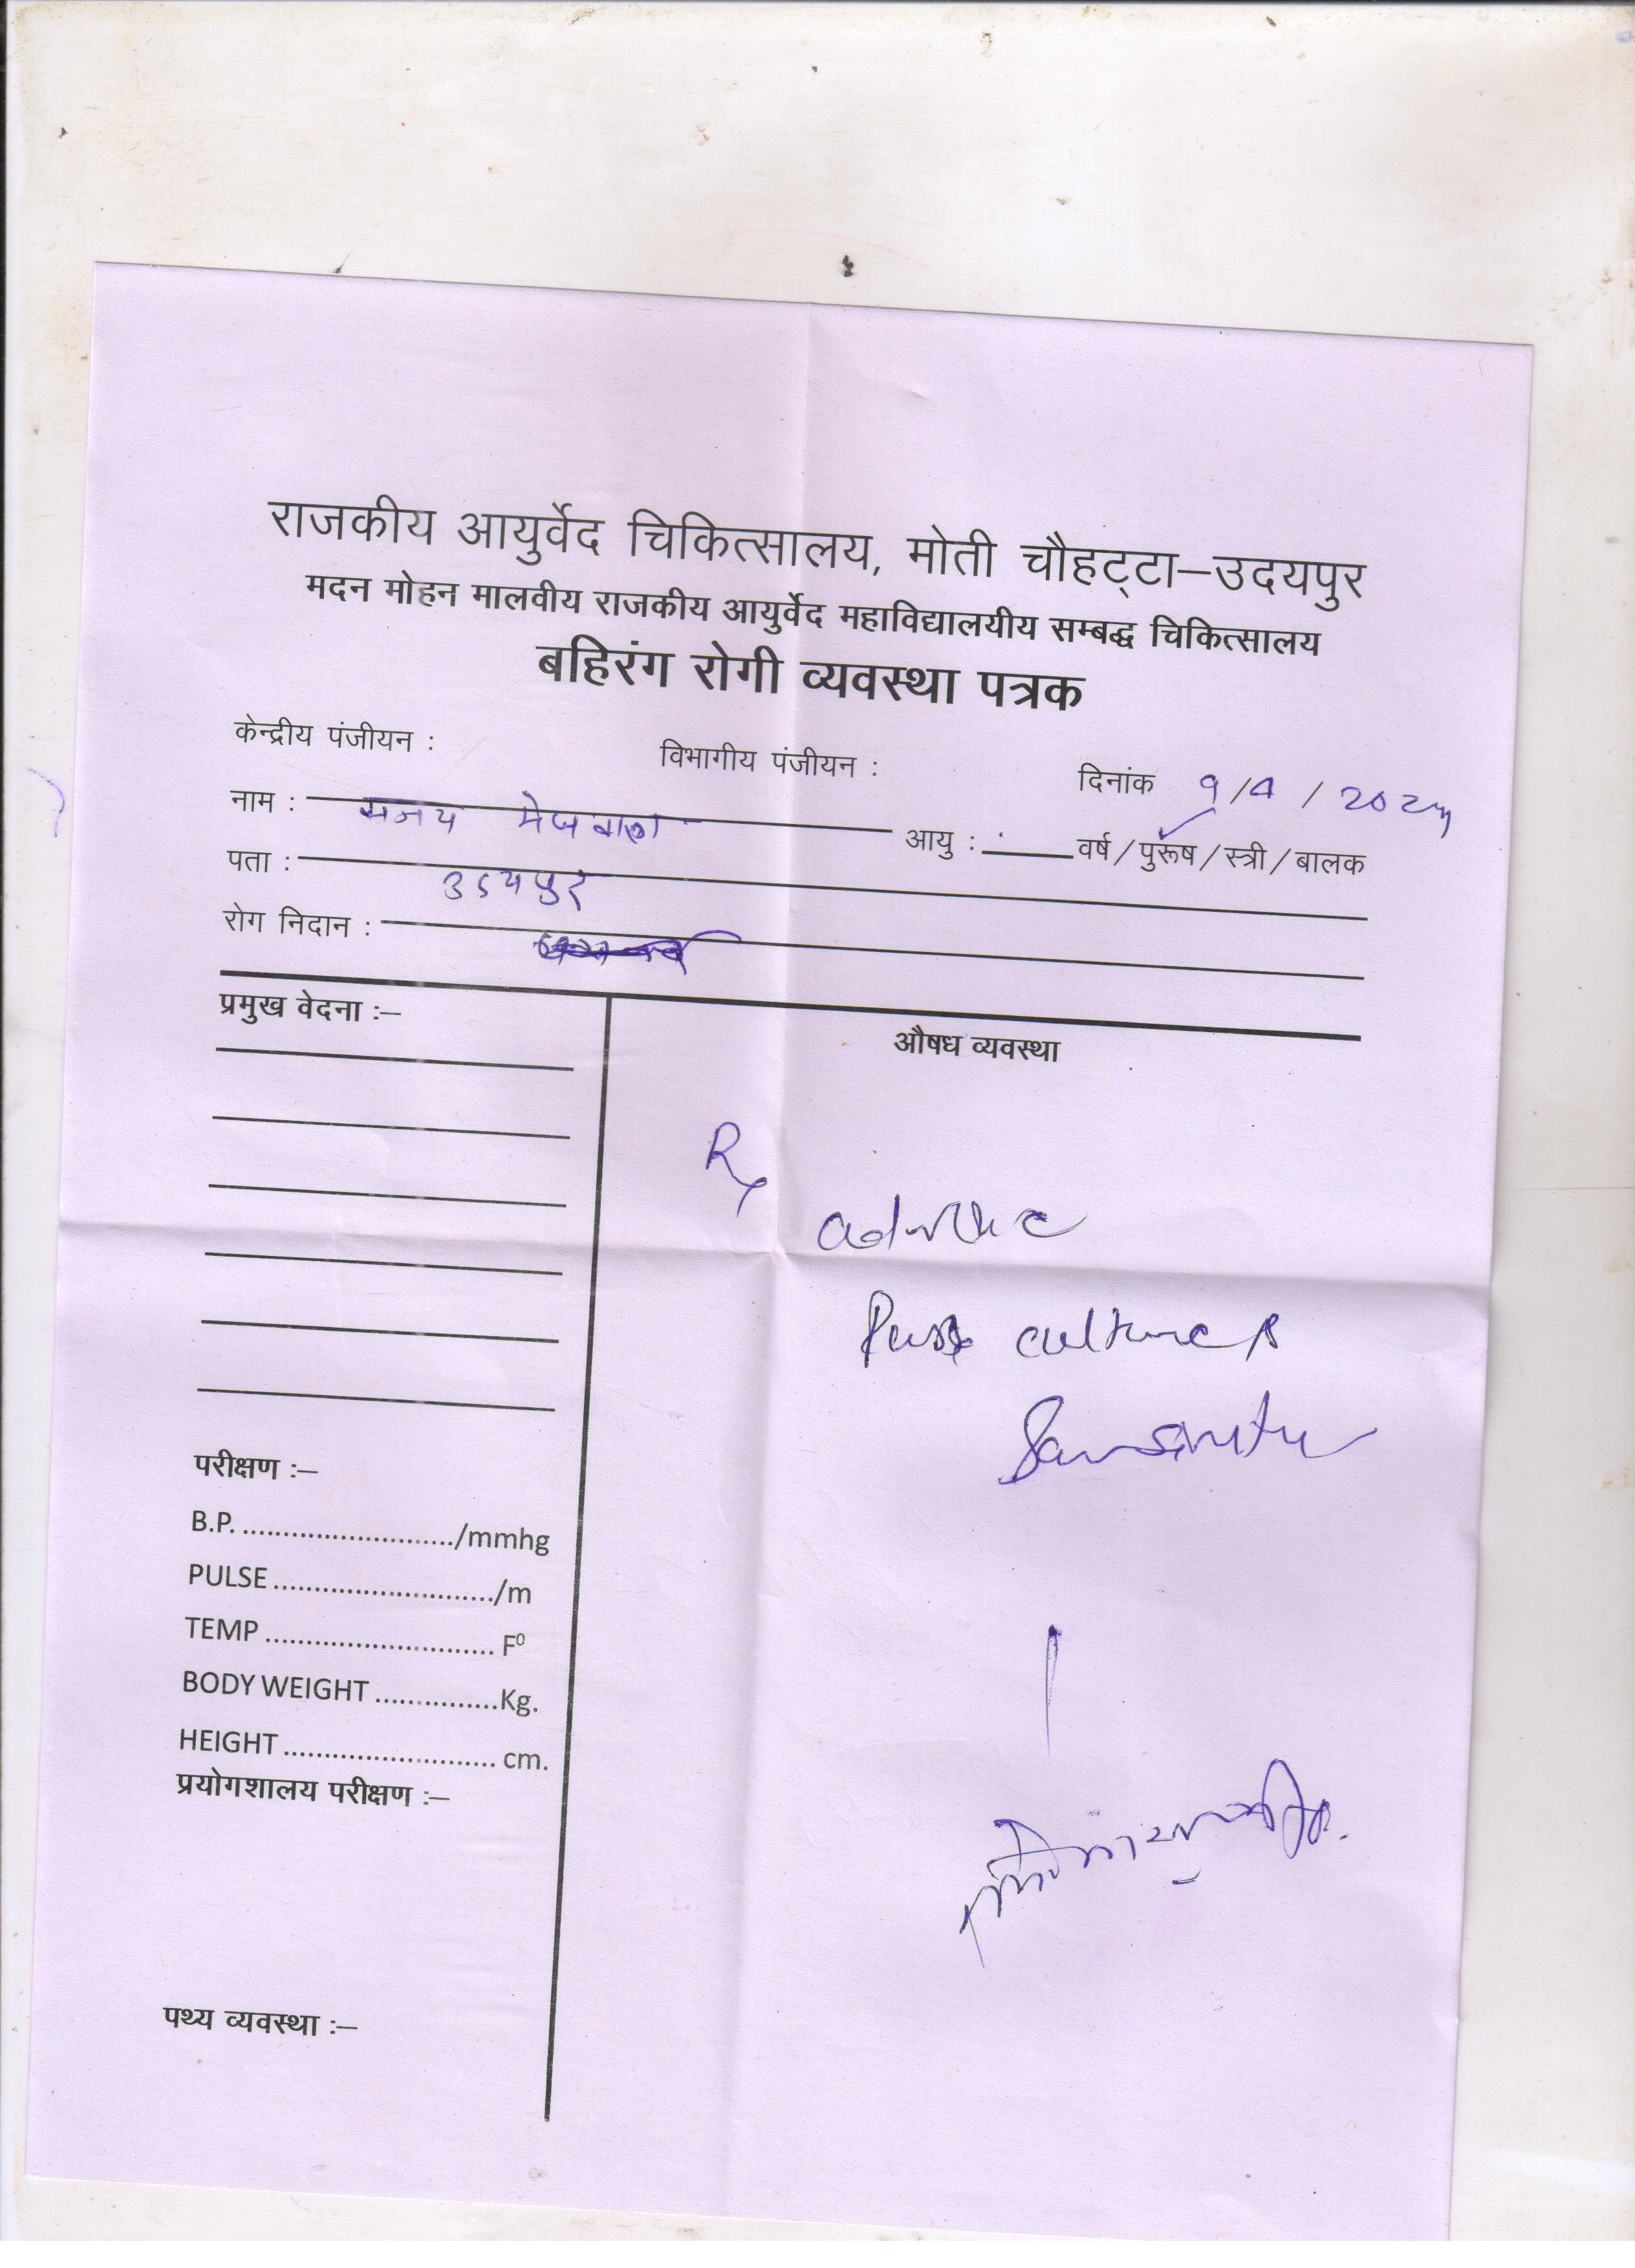 राजकीय आयुर्वेद चिकित्सालय, मोती चौहट्टा–उदयपुर
मदन मोहन मालवीय राजकीय आयुर्वेद महाविद्यालयीय सम्बद्ध चिकित्सालय
बहिरंग रोगी व्यवस्था पत्रक
केन्द्रीय पंजीयन : विभागीय पंजीयन : दिनांक 9/4 / 202
नाम : आयु : वर्ष / पुरूष / स्त्री / बालक
पता : उदयपुर
रोग निदान :
प्रमुख वेदना :–
औषध व्यवस्था
Rx
advice
Puss culture &
परीक्षण :–
B.P. ........................../mmhg
PULSE .........................../m
TEMP ............................ F⁰
BODY WEIGHT ...............Kg.
HEIGHT .......................... cm.
प्रयोगशालय परीक्षण :–
पथ्य व्यवस्था :–